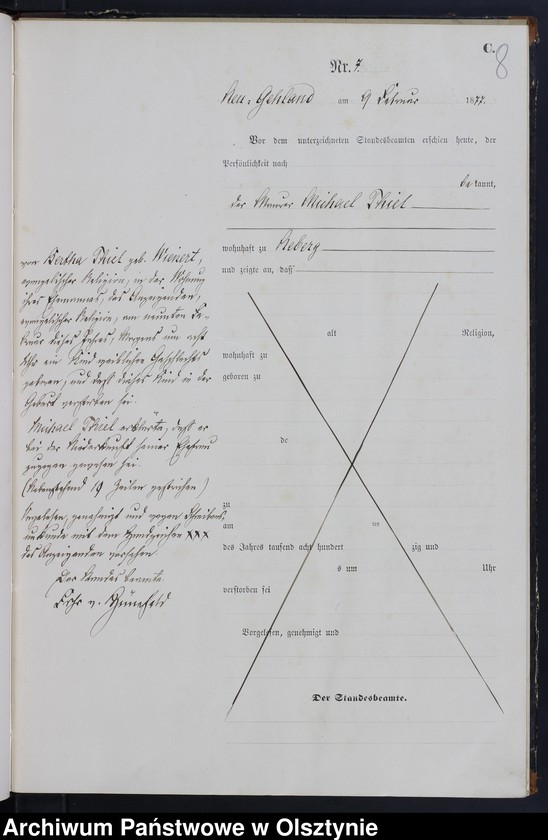 C.
8
Nr. 7.
Neu-Gehland am 9 Februar 1877.
Vor dem unterzeichneten Standesbeamten erschien heute, der
Persönlichkeit nach
bekannt,
der Maurer Michael Thiel
wohnhaft zu Reberg
und zeigte an, daß
von Bertha Thiel geb. Wienert,
evangelischer Religion, in der Wohnung
ihres Ehemannes, des Anzeigenden,
evangelischer Religion, am neunten Fe-
bruar dieses Jahres, Morgens um acht
Uhr ein Kind weiblichen Geschlechts
geboren, und daß dieses Kind in der
Geburt verstorben sei.
Michael Thiel erklärte, daß er
bei der Niederkunft seiner Ehefrau
zugegen gewesen sei.
(Nebenstehend 19 Zeilen gestrichen)
Vorgelesen, genehmigt und wegen Schreibens-
unkunde mit dem Handzeichen XXX
des Anzeigenden versehen
Der Standesbeamte.
alt Religion,
wohnhaft zu
geboren zu
de
zu
am
des Jahres tausend acht hundert zig und
s um Uhr
verstorben sei
Vorgelesen, genehmigt und
Der Standesbeamte.
Archiwum Państwowe w Olsztynie